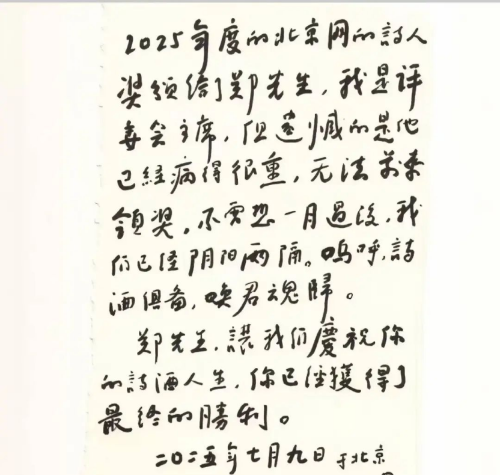 2025年度的北京网的詩人
奖颁给了郑先生，我是评
委会主席，但遗憾的是他
已经病得很重，无法前来
領奖。不曾想一月過後，我
们已经阴阳两隔。呜呼，詩
酒俱备，唤君魂歸。
郑先生，讓我们慶祝你
的詩酒人生，你已经獲得了
最终的勝利。
二〇二五年七月九日于北京